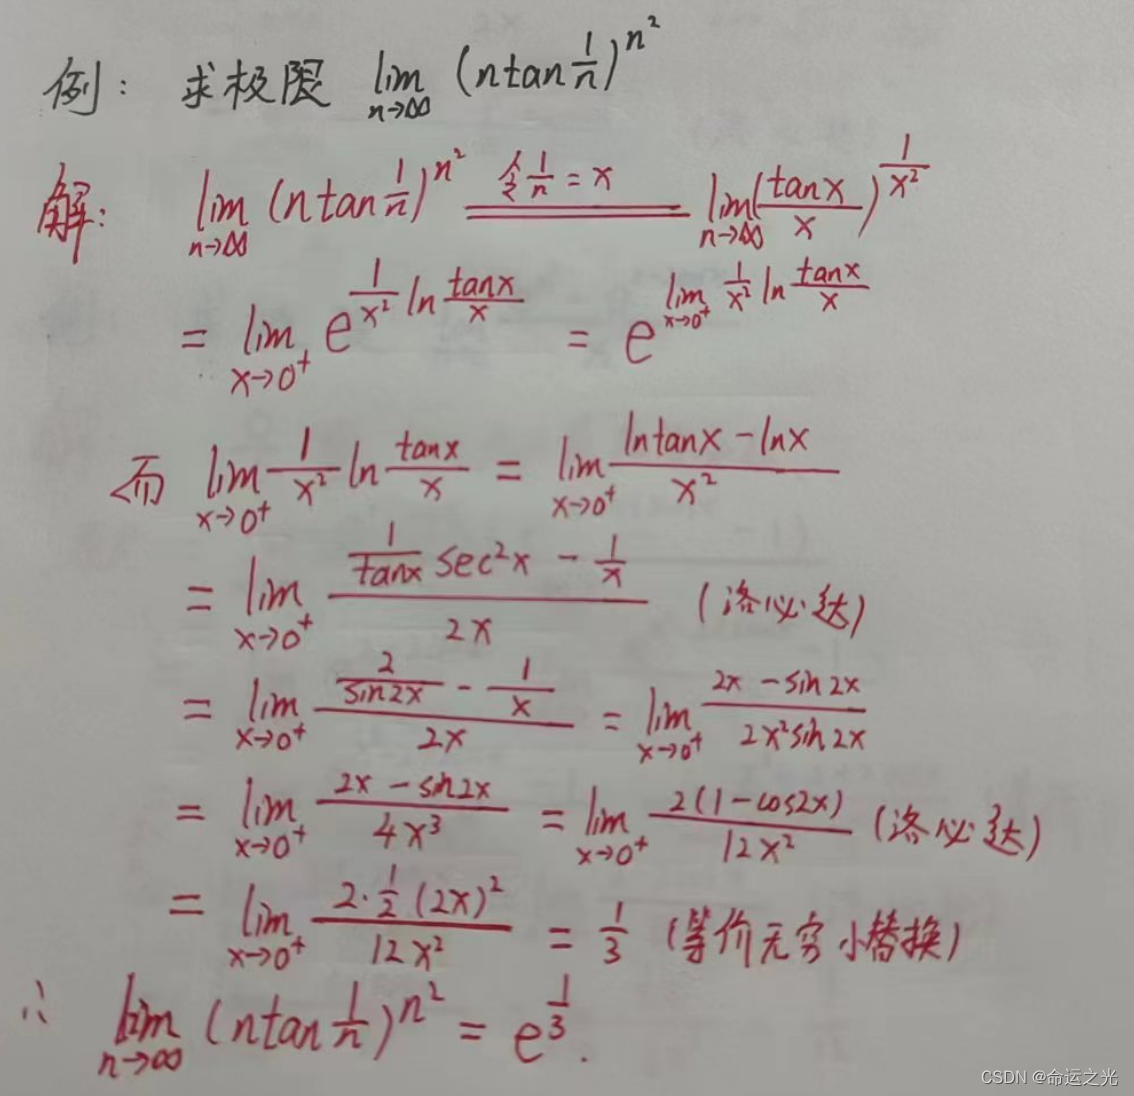 例: 求极限 lim_{n→∞} (ntan 1/n)^{n²}
解: lim_{n→∞} (ntan 1/n)^{n²} 令1/n=x lim_{n→∞} (tanx/x)^{1/x²}
= lim_{x→0⁺} e^{1/x² ln tanx/x} = e^{lim_{x→0⁺} 1/x² ln tanx/x}
而 lim_{x→0⁺} 1/x² ln tanx/x = lim_{x→0⁺} (lntanx-lnx)/x²
= lim_{x→0⁺} (1/tanx sec²x - 1/x)/2x (洛必达)
= lim_{x→0⁺} (2/sin2x - 1/x)/2x = lim_{x→0⁺} (2x-sin2x)/(2x²sin2x)
= lim_{x→0⁺} (2x-sin2x)/4x³ = lim_{x→0⁺} 2(1-cos2x)/12x² (洛必达)
= lim_{x→0⁺} (2·1/2(2x)²)/12x² = 1/3 (等价无穷小替换)
∴ lim_{n→∞} (ntan 1/n)^{n²} = e^{1/3}.
CSDN @命运之光